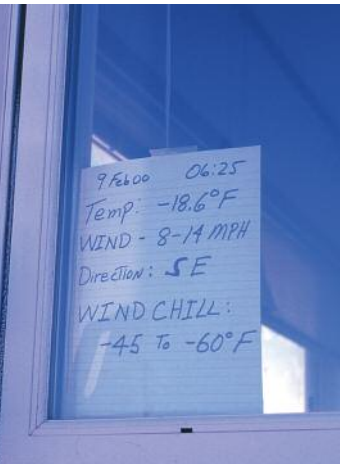 9 Feb 00 06:25
Temp: -18.6°F
WIND - 8-14 MPH
Direction: SE
WIND CHILL:
-45 To -60°F